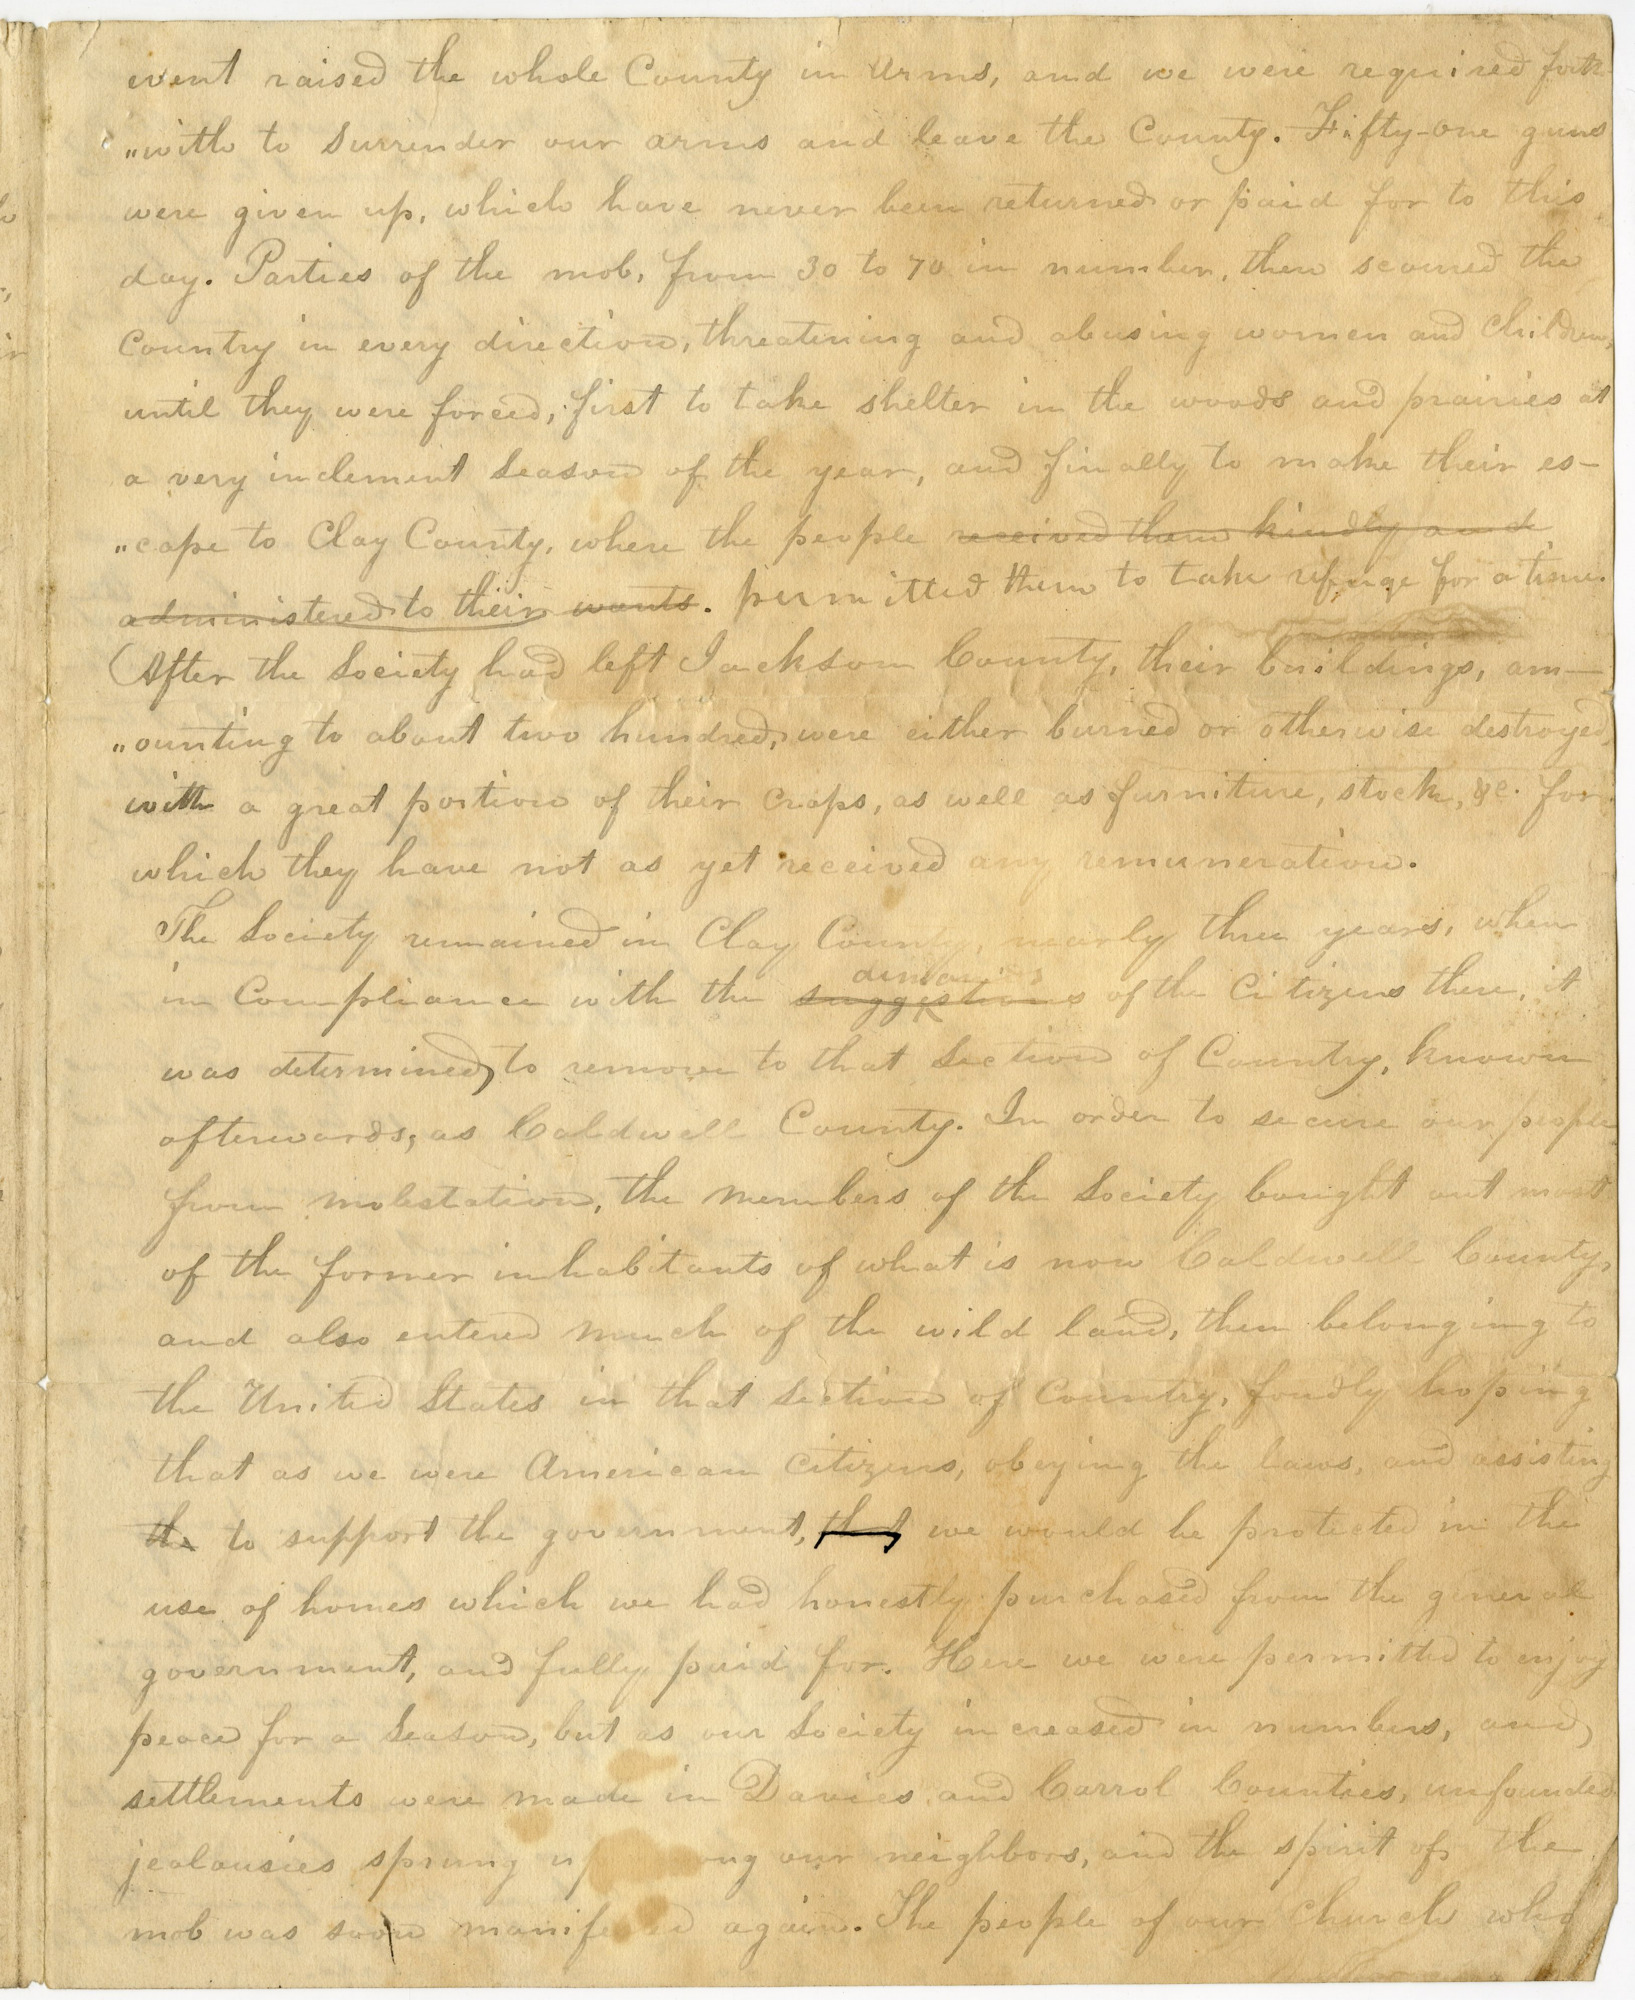 event raised the whole County in arms, and we were required forth-
"with to Surrender our arms and leave the County. Fifty-one guns
were given up, which have never been returned or paid for to this
day. Parties of the mob, from 30 to 70 in number, then scoured the
Country in every direction, threatening and abusing women and children,
until they were forced, first to take shelter in the woods and prairies at
a very inclement Season of the year, and finally to make their es-
"cape to Clay County, where the people received them kindly and
administered to their wants. permitted them to take refuge for a time.
(After the Society had left Jackson County, their buildings, am-
"ounting to about two hundred, were either burned or otherwise destroyed,
with a great portion of their crops, as well as furniture, stock, &c. for
which they have not as yet received any remuneration.
The Society remained in Clay County, nearly three years, when
demands
in Compliance with the suggestions of the Citizens there, it
was determined, to remove to that Section of Country, known
afterwards, as Caldwell County. In order to secure our people
from molestation, the members of the Society bought out most
of the former inhabitants of what is now Caldwell County,
and also entered much of the wild land, then belonging to
the United States in that Section of Country, fondly hoping
that as we were American citizens, obeying the laws, and assisting
the to support the government, that we would be protected in the
use of homes which we had honestly purchased from the general
government, and fully paid for. Here we were permitted to enjoy
peace for a Season, but as our Society increased in numbers, and,
settlements were made in Davies, and Carrol Counties, unfounded
jealousies sprung up ong our neighbors, and the spirit of the
mob was soon manife d again. The people of our Church who